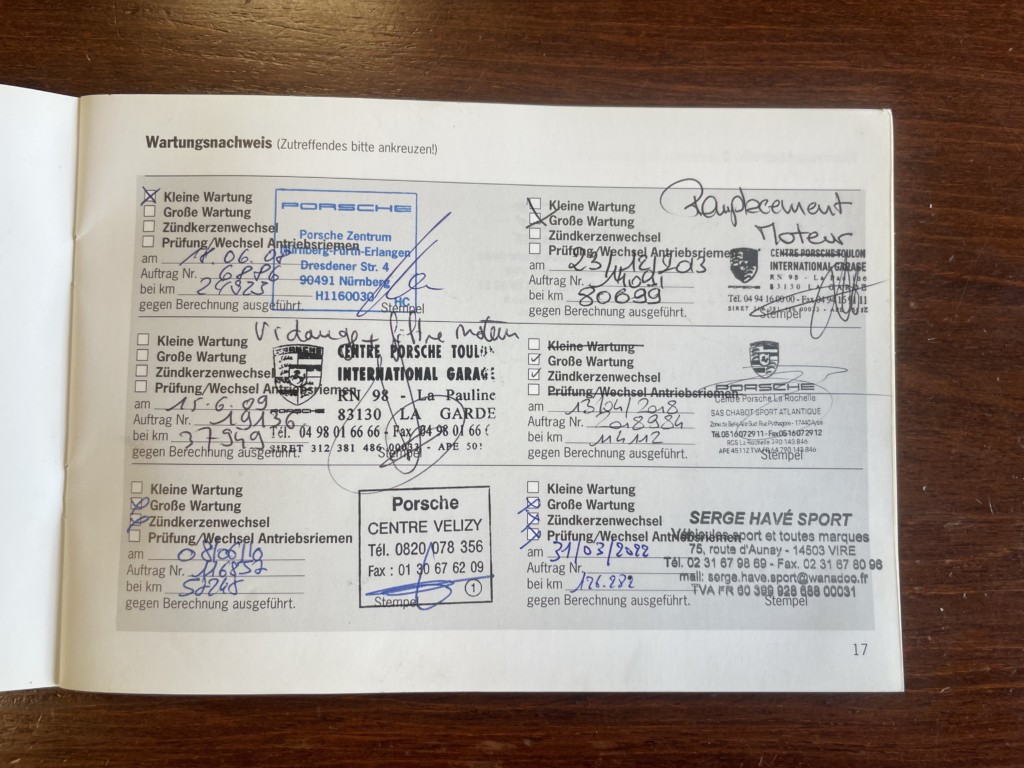 Wartungsnachweis (Zutreffendes bitte ankreuzen!)
Kleine Wartung
Große Wartung
Zündkerzenwechsel
Prüfung/Wechsel Antriebsriemen
am 18.06.98
Auftrag Nr. 6886
bei km 24923
gegen Berechnung ausgeführt.
PORSCHE
Porsche Zentrum
Nürnberg-Fürth-Erlangen
Dresdener Str. 4
90491 Nürnberg
H1160030
HC
Stempel
Vidange + filtre moteur
Kleine Wartung
Große Wartung
Zündkerzenwechsel
Prüfung/Wechsel Antriebsriemen
am 15.6.09
Auftrag Nr. 19136
bei km 37949
gegen Berechnung ausgeführt.
CENTRE PORSCHE TOULON
INTERNATIONAL GARAGE
RN 98 - La Pauline
83130 LA GARDE
Tél. 04 98 01 66 66 - Fax 04 98 01 66 6
SIRET 312 381 486 00033 - APE 501
Stempel
Kleine Wartung
Große Wartung
Zündkerzenwechsel
Prüfung/Wechsel Antriebsriemen
am 08/06/10
Auftrag Nr. 116857
bei km 52245
gegen Berechnung ausgeführt.
Porsche
CENTRE VELIZY
Tél. 0820 078 356
Fax : 01 30 67 62 09
Stempel
1
Remplacement
Moteur
Kleine Wartung
Große Wartung
Zündkerzenwechsel
Prüfung/Wechsel Antriebsriemen
am 23/12/2013
Auftrag Nr.
bei km 80699
gegen Berechnung ausgeführt.
CENTRE PORSCHE TOULON
INTERNATIONAL GARAGE
RN 98 - La Pauline
83130 LA GARDE
Tél. 04 94 16 00 00 - Fax 04 94 15 91 11
Stempel
Kleine Wartung
Große Wartung
Zündkerzenwechsel
Prüfung/Wechsel Antriebsriemen
am 13/04/2018
Auftrag Nr. 218984
bei km 114112
gegen Berechnung ausgeführt.
PORSCHE
Centre Porsche La Rochelle
SAS CHABOT SPORT ATLANTIQUE
Tél. 05 16 07 29 11 - Fax 05 16 07 29 12
Stempel
Kleine Wartung
Große Wartung
Zündkerzenwechsel
Prüfung/Wechsel Antriebsriemen
am 31/03/2022
Auftrag Nr.
bei km 126.282
gegen Berechnung ausgeführt.
SERGE HAVÉ SPORT
Véhicules sport et toutes marques
75, route d'Aunay - 14503 VIRE
Tél. 02 31 67 98 69 - Fax. 02 31 67 80 96
mail: serge.have.sport@wanadoo.fr
TVA FR 60 399 928 688 00031
Stempel
17